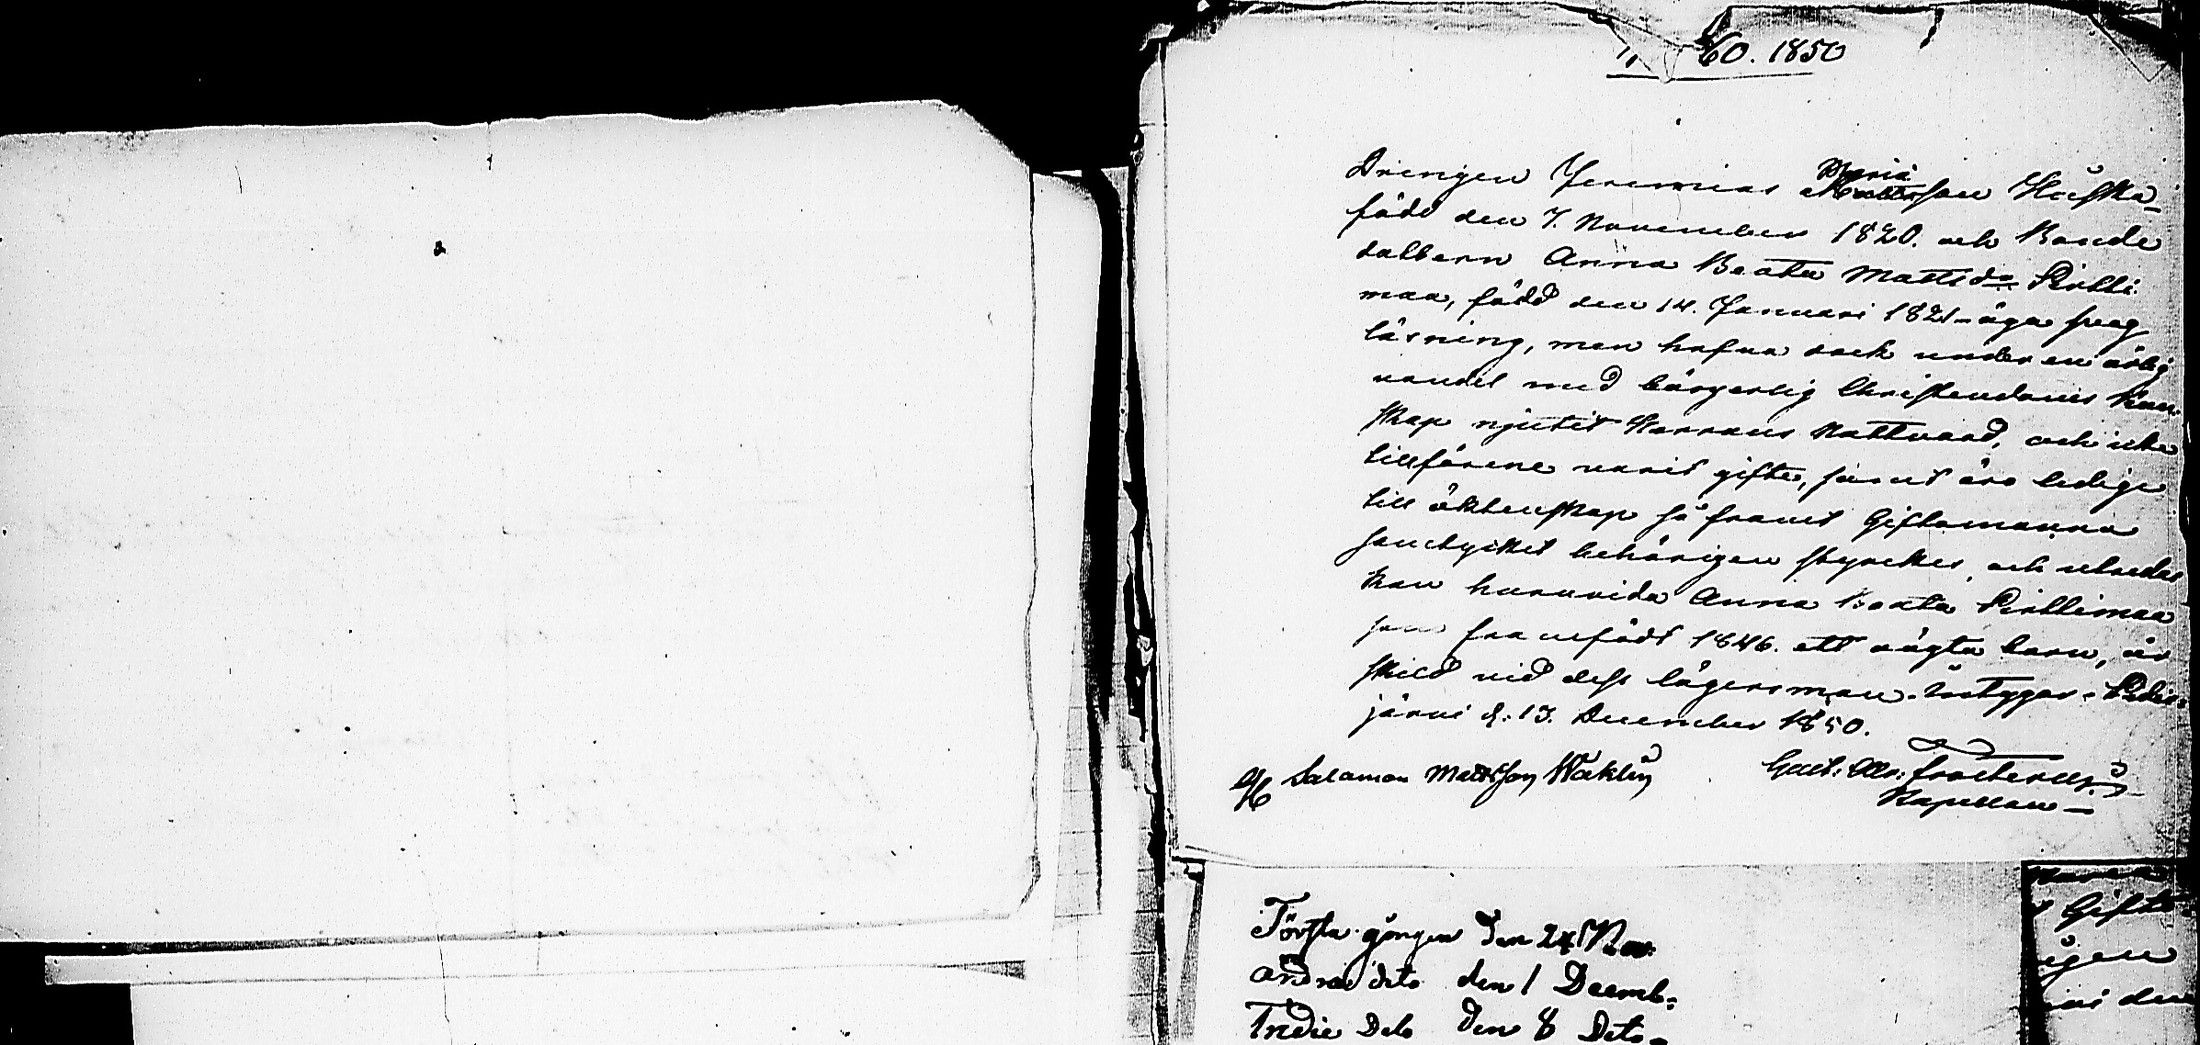 60. 1850
Drengen Jeremias Mariä
Mattsson Huska
född den 7. November 1820. och Bonde
dottern Anna Beata Mattsd:r Pirtti
maa, född den 14. Januari 1821 – äga svag
läsning, men hafva dock under en ärlig
vandel med bärgerlig Christendoms kun
skap njutit Herrans Nattvard, och icke
tillförene varit gifte, samt äro ledige
till äktenskap så framt Giftomanna
samtycket behörigen styrckes, och utredas
kan huruvida Anna Beata Pirttimaa
som framfödt 1846. ett oägta barn, är
skild vid dess lägersman. intygar – Pidis-
järvi d: 13. December 1850.
Gust: Alb: Frosterus
Kapellan –
Salamon Mattsson Wäklin
Första gången den 24 Nov:
Andra dito den 1 Decemb:
Tredie Dito den 8 Dito –
Gifto